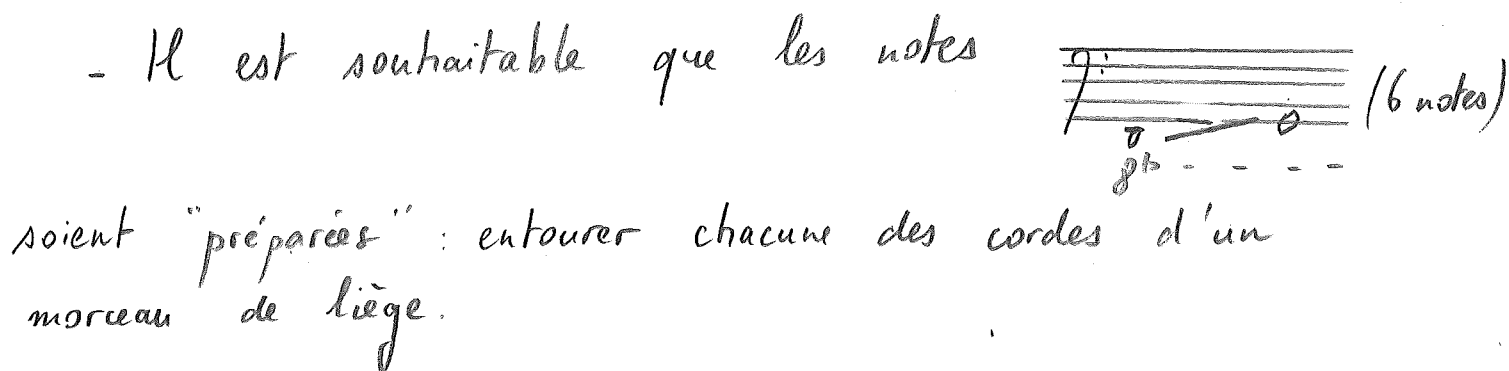 - Il est souhaitable que les notes (6 notes)
8b - - - -
soient "préparées" : entourer chacune des cordes d'un
morceau de liège.